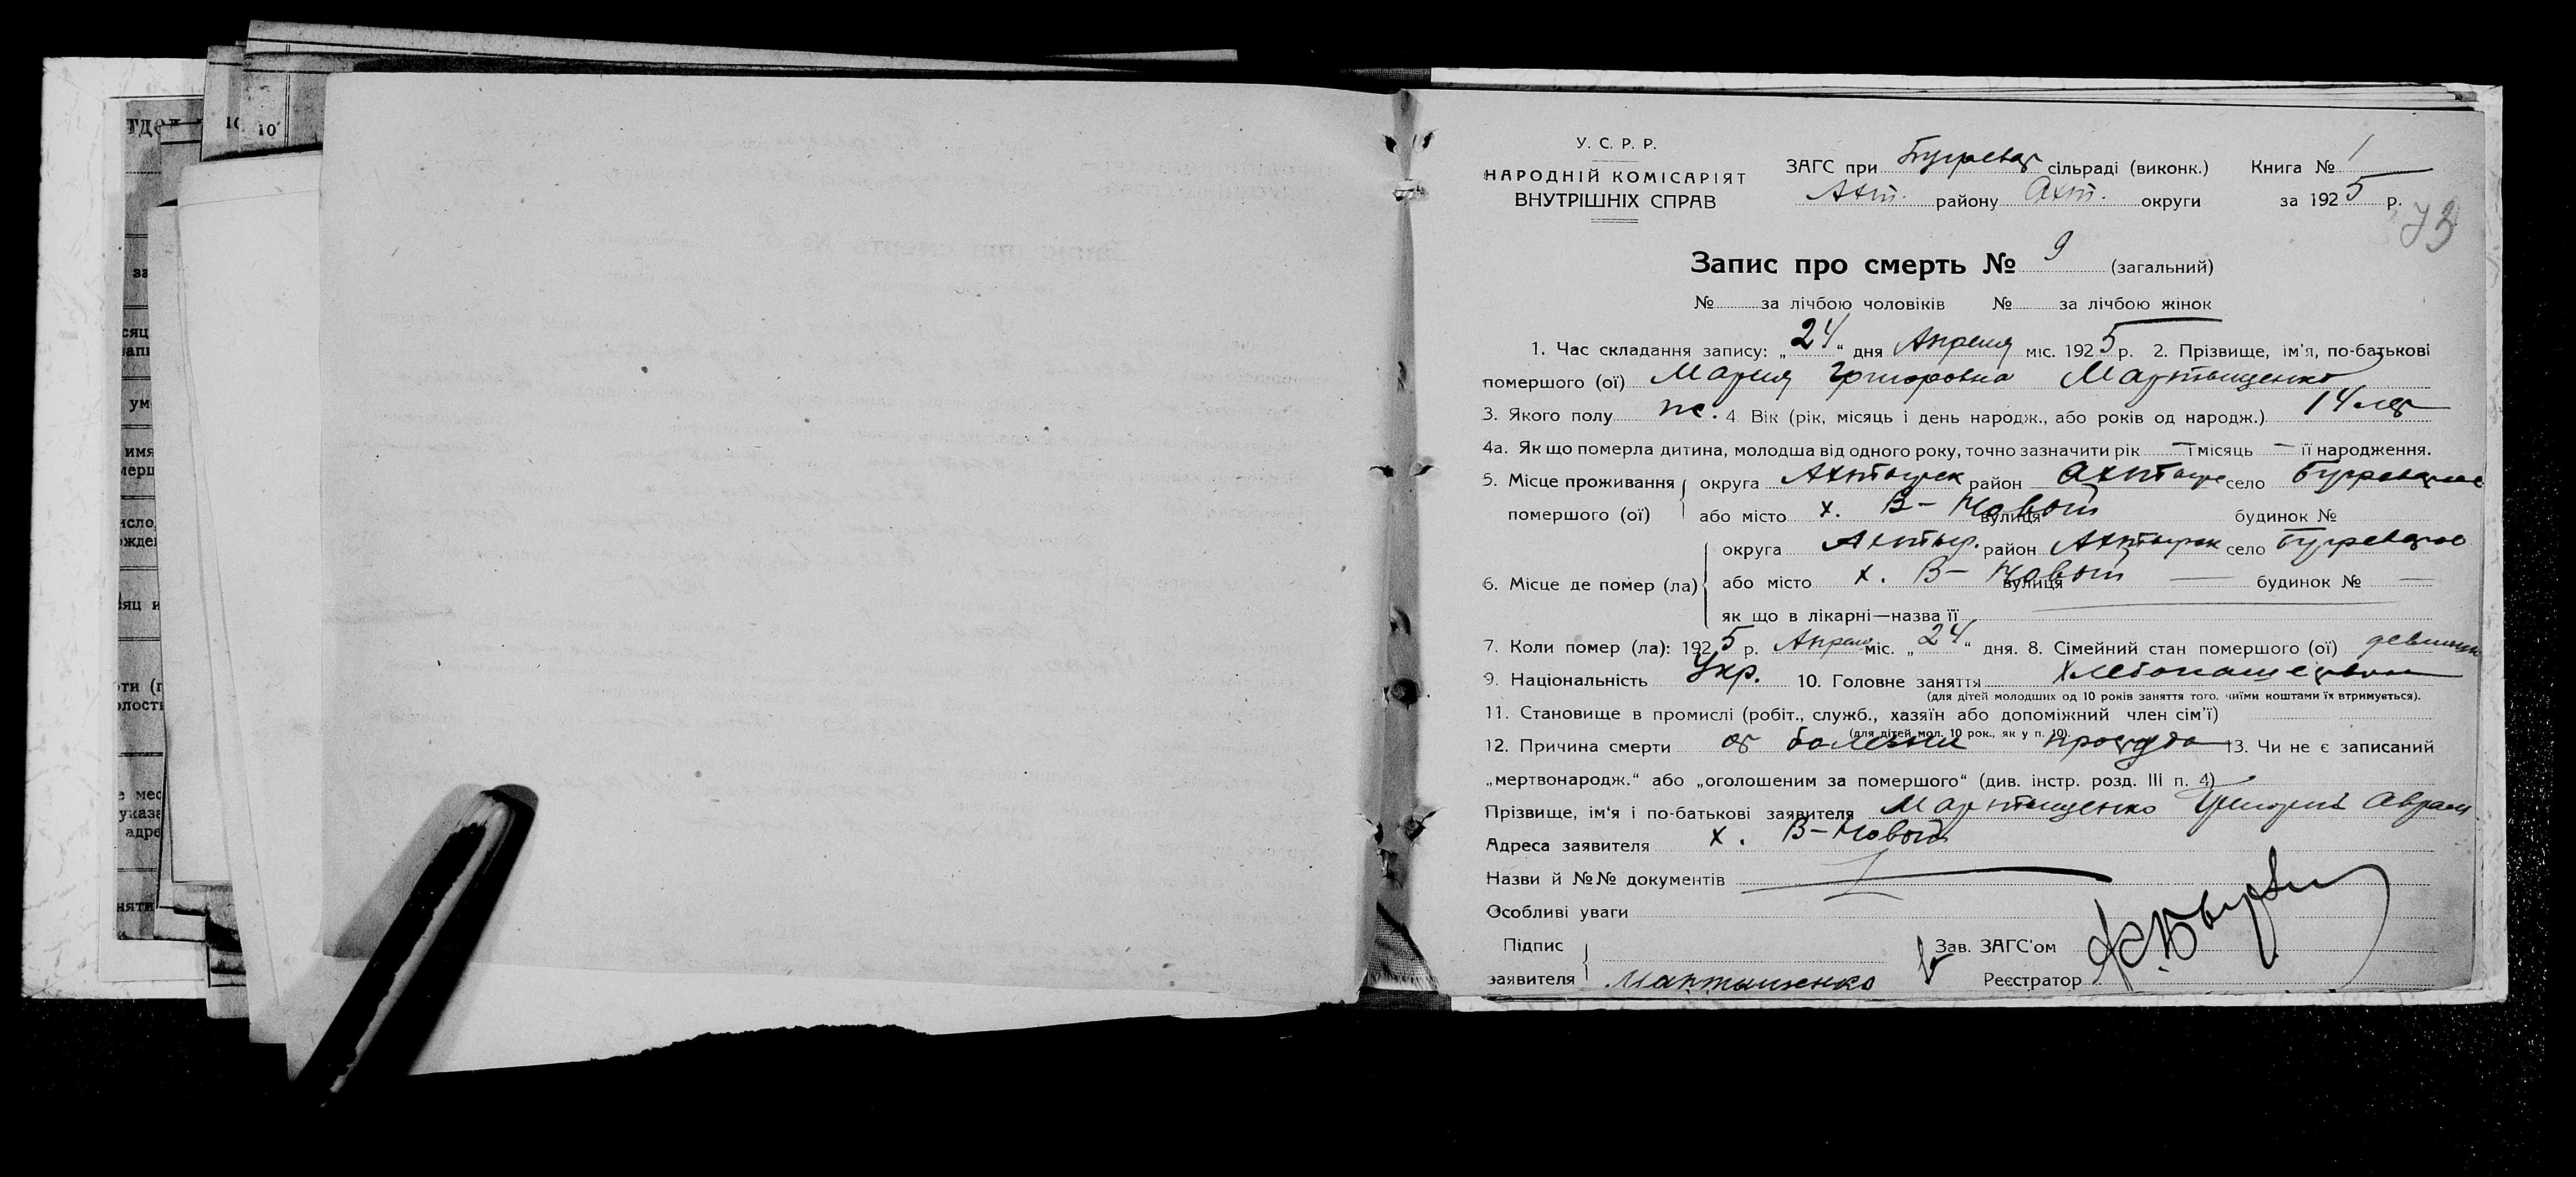 тдел
10
10
за
сяц
ум
имя
мерш
исло,
ожде
яц и
ти (г
е мес
указа
адре
няти
У. С. Р. Р.
НАРОДНІЙ КОМІСАРІЯТ
ВНУТРІШНІХ СПРАВ
ЗАГС при сільраді (виконк.) Книга № 1
Ахт. району Ахт. округи за 1925 р.
73
Запис про смерть № 9 (загальний)
№ за лічбою чоловіків № за лічбою жінок
1. Час складання запису: „24“ дня Апреля міс. 1925 р. 2. Прізвище, ім'я, по-батькові
помершого (ої) Мария Григоровна Мартыщенко
3. Якого полу ж. 4. Вік (рік, місяць і день народж., або років од народж.) 14 лет
4а. Як що померла дитина, молодша від одного року, точно зазначити рік — і місяць — її народження.
5. Місце проживання округа Ахтырск район Ахтыр село Бугреватое
помершого (ої) або місто х. В-Новый вулиця будинок №
округа Ахтыр. район Ахтырск село Бугреватое
6. Місце де помер (ла) або місто х. В-Новый вулиця — будинок № —
як що в лікарні—назва її
7. Коли помер (ла): 1925 р. Апреля міс. „24“ дня. 8. Сімейний стан помершого (ої) девица
9. Національність Укр. 10. Головне заняття
(для дітей молодших од 10 років заняття того, чиїми коштами їх втримується).
11. Становище в промислі (робіт., служб., хазяїн або допоміжний член сім'ї)
(для дітей мол. 10 рок., як у п. 10).
12. Причина смерти от болезни простуда 13. Чи не є записаний
„мертвонародж.“ або „оголошеним за помершого“ (див. інстр. розд. III п. 4) —
Прізвище, ім'я і по-батькові заявителя Мартыщенко Григорий Аврам
Адреса заявителя х. В-Новый
Назви й №№ документів
Особливі уваги
Підпис Зав. ЗАГС'ом
заявителя Мартыщенко Реєстратор